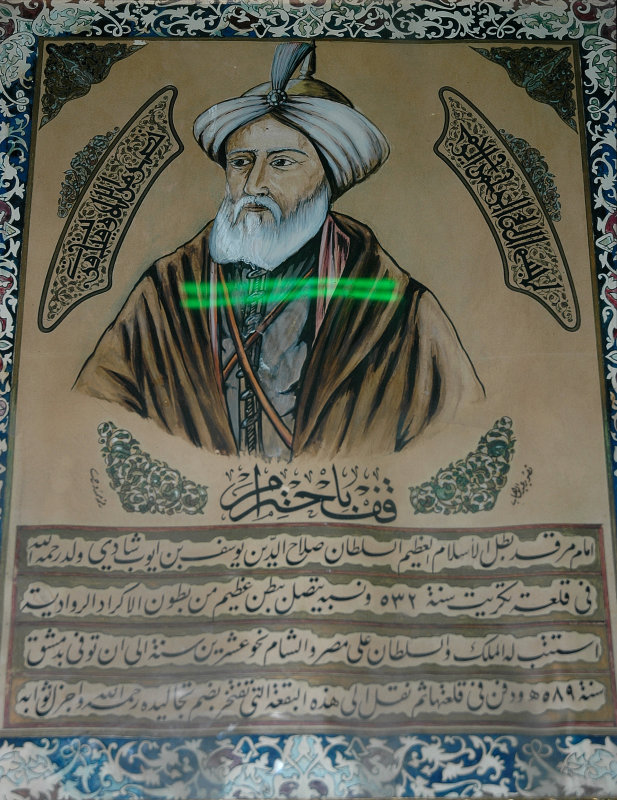 بسم الله الرحمن الرحيم
نصر من الله وفتح قريب
قف باحترام
امام مرقد بطل الاسلام العظيم السلطان صلاح الدين يوسف بن ايوب شادي ولد رحمه الله
في قلعة تكريت سنة ٥٣٢ ونسبه يتصل ببطن عظيم من بطون الاكراد الروادية
استتب له الملك والسلطان على مصر والشام نحو عشرين سنة الى ان توفى بدمشق
سنة ٥٨٩ھ ودفن في قلعتها ثم نقل الى هذه البقعة التي تفتخر بضم تجاليده رحمه الله وجزل ثوابه